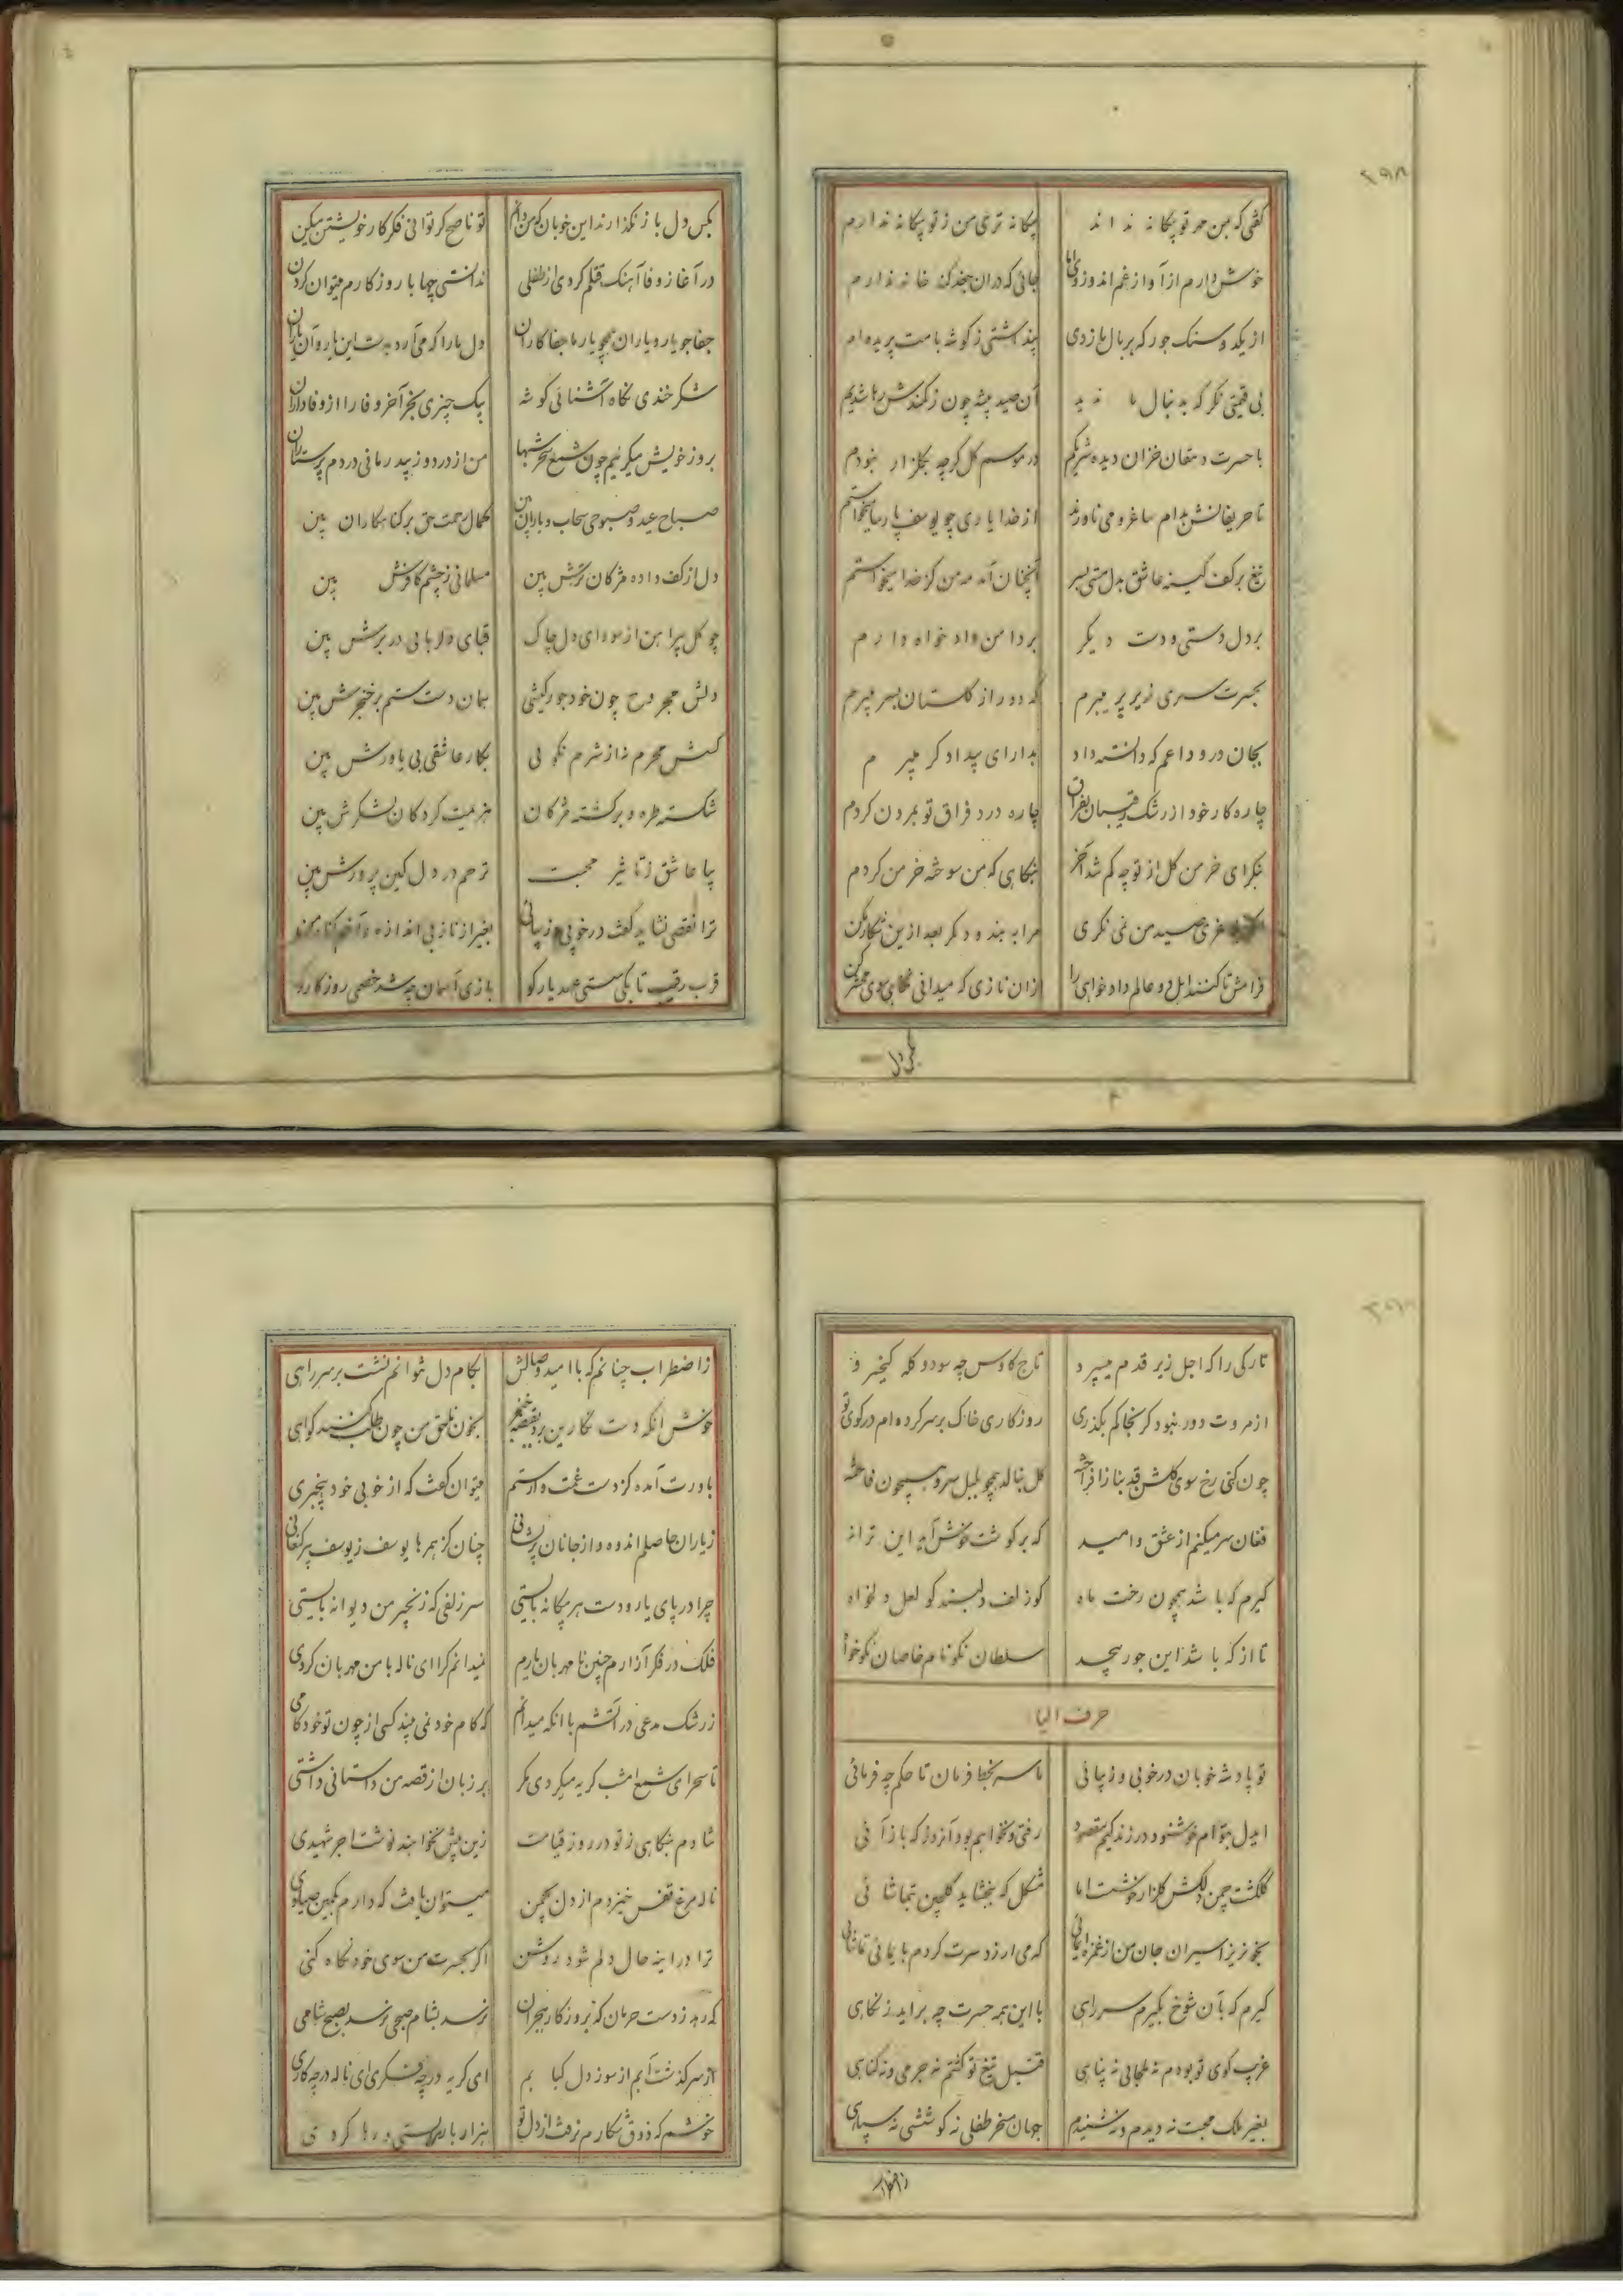 ۲۹۸
گفتی که بمن جز تو بیگانه نداند بیگانه تری من ز تو بیگانه ندارم
خوش دارم از آواز غم اندوز جائی که دران جغد کند خانه ندارم
از یکد و سنک جور که بر بال ما زدی پنداشتی ز گوشه بامت پریده ام
بی قیمتی نگر که به دنبال ما ندید آن صید پیشه چون ز کمندش رها شدیم
با حسرت دهقان خزان دیده شریکم در موسم گل گرچه بگلزار نبودم
تا حریفانش بدام ساغر و می ناورند از خدا یاری چو یوسف پارسا میخواستم
تیغ بر کف کینه عاشق بدل مستی بسر آنچنان آمد به من کز خدا میخواستم
بر دل دستی و دست دیگر بر دامن داد خواه دارم
بحسرت سری زیر پر میبرم که دور از گلستان بسر میبرم
بجان درو داعم که دانسته داد بدارای بیدادگر میبرم
چاره کار خود از رشک رقیبان بفراق چاره درد فراق تو بمردن کردم
نگر ای خرمن گل از تو چه کم شد آخر بنگاهی که من سوخته خرمن کردم
صید من نمی نگری مرا به بند و دگر بعد ازین شکار مکن
فرامش تا کنند اهل دو عالم داد خواهی را زان نازی که میدانی نگاهی سوی محشر کن
بکس دل
بکس دل باز نگذارند این خوبان که من دانم تو ناصح گر توانی فکر کار خویشتن میکن
در آغاز وفا آهنک قتلم کردی از طفلی ندانستی چها با روزگارم میتوان کردن
جفا جو یار و یاران همچو یار ما جفا کاران دل ما را که می آرد بدست این یار و آن یاران
شکر خندی نگاه آشنائی گوشه بیک چیزی بخر آخر وفا را از وفاداران
بروز خویش میگریم چون شمع سحر شبها من از درد و ز بیدرمانی دردم پرستاران
صباح عید و صبوحی سحاب و باران بین کمال رحمت حق بر گناهکاران بین
دل از کف داده مژگان ترش بین مسلمانی ز چشم کافرش بین
چو گل پیراهن از سودای دل چاک قبای دلربائی در برش بین
دلش مجروح چون خود جور کیشی همان دست ستم بر خنجرش بین
کش محرم نه از شرم نکوئی بکار عاشقی بی یاورش بین
شکسته طره و برگشته مژگان هزیمت کردگان لشکرش بین
بیا عاشق ز تاثیر محبت ترحم در دل کین پرورش بین
ترا نقصی نشاید گفت در خوبی و زیبائی بغیر از ناز بی اندازه و
قرب رقیب تا بکی سستی عهد یار کو بازی آسمان چه شد خصمی روزگار کو
تارکی را که اجل زیر قدم میسپرد تاج کاوس چه سود و کله کیخسرو
از مروت دور نبود گر بخاکم بگذری روزگاری خاک بر سر کرده ام در کوی تو
چون کنی رخ سوی گلشن قد بناز افراخته گل بنالد همچو بلبل سرو همچون فاخته
فغان سر میکنم از عشق و امید که بر گوشت خوش آید این ترانه
گیرم که باشد همچون رخت ماه کو زلف دلبند کو لعل دلخواه
تا از که باشد این جور بیحد سلطان نکونام خاصان نکوخواه
حرف الیا
تو پادشه خوبان در خوبی و زیبائی ما سر بخط فرمان تا حکم چه فرمائی
ایدل بتو ام خوشنود در زندگیم مقصود رفتی و نخواهم بود آنروز که باز آئی
گلگشت چمن دلکش گلزار خوشست اما مشکل که ببخشاید گلچین تماشائی
بخونریز اسیران جان من از غمزه ایمائی که می ارزد سرت گردم بایمائی تماشائی
گیرم که بآن شوخ بگیرم سر راهی با این همه حسرت چه براید ز نگاهی
غریب کوی تو بودم نه ملجائی نه پناهی قتیل تیغ تو گشتم نه جرمی و نه گناهی
بغیر ملک محبت نه دیدم و نه شنیدم جهان مسخر طفلی نه کوششی نه سپاهی
ز اضطراب
ز اضطراب چنانم که با امید وصالش بکام دل نتوانم نشست بر سر راهی
خوش آنکه دست نگارین برد بقبضه خنجر بخون ناحق من چون طلب کنند گواهی
باورت آمده کز دست غمت وارستم میتوان گفت که از خوبی خود بیخبری
ز یاران حاصلم اندوه و از جانان پریشانی چنان کز بهرها یوسف ز یوسف پیر کنعانی
چرا در پای یار و دست هر بیگانه بایستی سر زلفی که زنجیر من دیوانه بایستی
فلک در فکر آزارم چنین نامهربان یارم نمیدانم کرا ای ناله با من مهربان کردی
ز رشک مدعی در آتشم با آنکه میدانم که کام خود نمی بیند کسی از چون تو خودکامی
تا سحر ای شمع امشب گریه میکردی مگر بر زبان از قصه من داستانی داشتی
شادم بنگاهی ز تو در روز قیامت زین بیش نخواهند نوشت اجر شهیدی
ناله مرغ قفس خیزدم از دل بچمن میتوان یافت که دارم بکمین صیادی
ترا در اینه حال دلم شود روشن اگر بحسرت من سوی خود نگاه کنی
که رهد ز دست حرمان که بروزگار هجران نرسد بشام صبحی نرسد بصبح شامی
از سر گذشت آبم از سوز دل کبابم ای گریه در چه فکری ای ناله در چه کاری
خوشم که ذوق شکارم نرفت از دل تو هزار بار ببستی و رها کردی